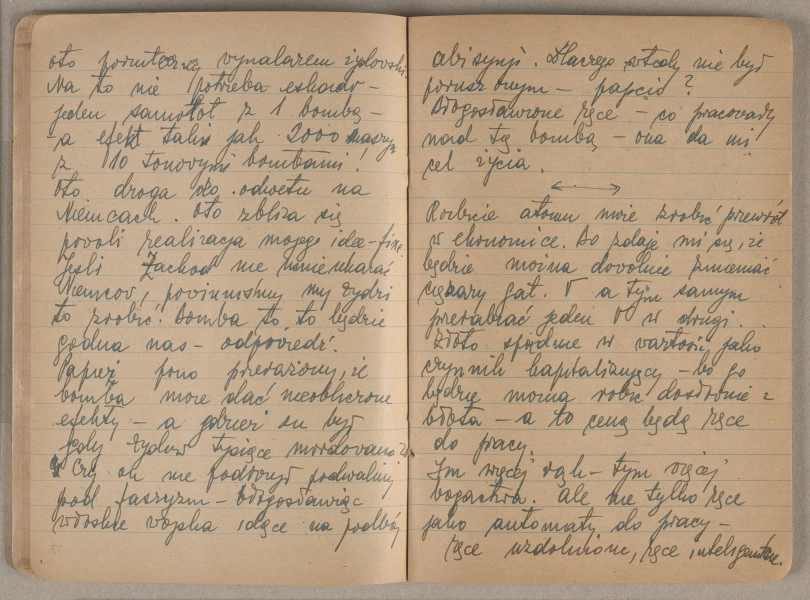 oto 
Na to nie potrieba eskadr –
jeden samolot z 1 bombą –
a efekt taki jak 2000 maszyn
z 10 tonovymi bombami!
Oto droga do odwetu na
Niemcach. Oto zbliża się
povoli realizacja mojego idée-fixe.
Jeśli Zachod nie umie ukarać
Niemcov, povinniśmy my żydzi
to zrobić. Bomba to, to będzie
godna nas – odpoviedź.
Papież fono przerażony, że
bomba może dać nieobliczone
efekty – a gdzież on był
gdy żydów tysiące mordovano?
Czy on nie podłożył podwaliny
pod faszyzm – błogosławiąc
włoskie vojska idące na podbój
abisynji. Dlaczego wtedy nie był
poruszonym – papcio?
Błogosłavione ręce – co pracovały
nad tą bombą – ona da mi
cel życia.
Rozbicie atomu może zrobić przewrót
w ekonomice. Bo zdaje mi się, że
będzie można dovolnie zmieniać
ciężary gat. V a tym samym
przerabiać jeden V w drugi.
Złoto spadnie w wartości, jako
czynnik kapitalizujący – bo go
będzie można robić dosłownie z
błota – a to ceną będą ręce
do pracy.
Im więcej rąk – tym więcej
bogactva. Ale nie tylko ręce
jako automaty do pracy –
ręce uzdolnione, ręce inteligentne.